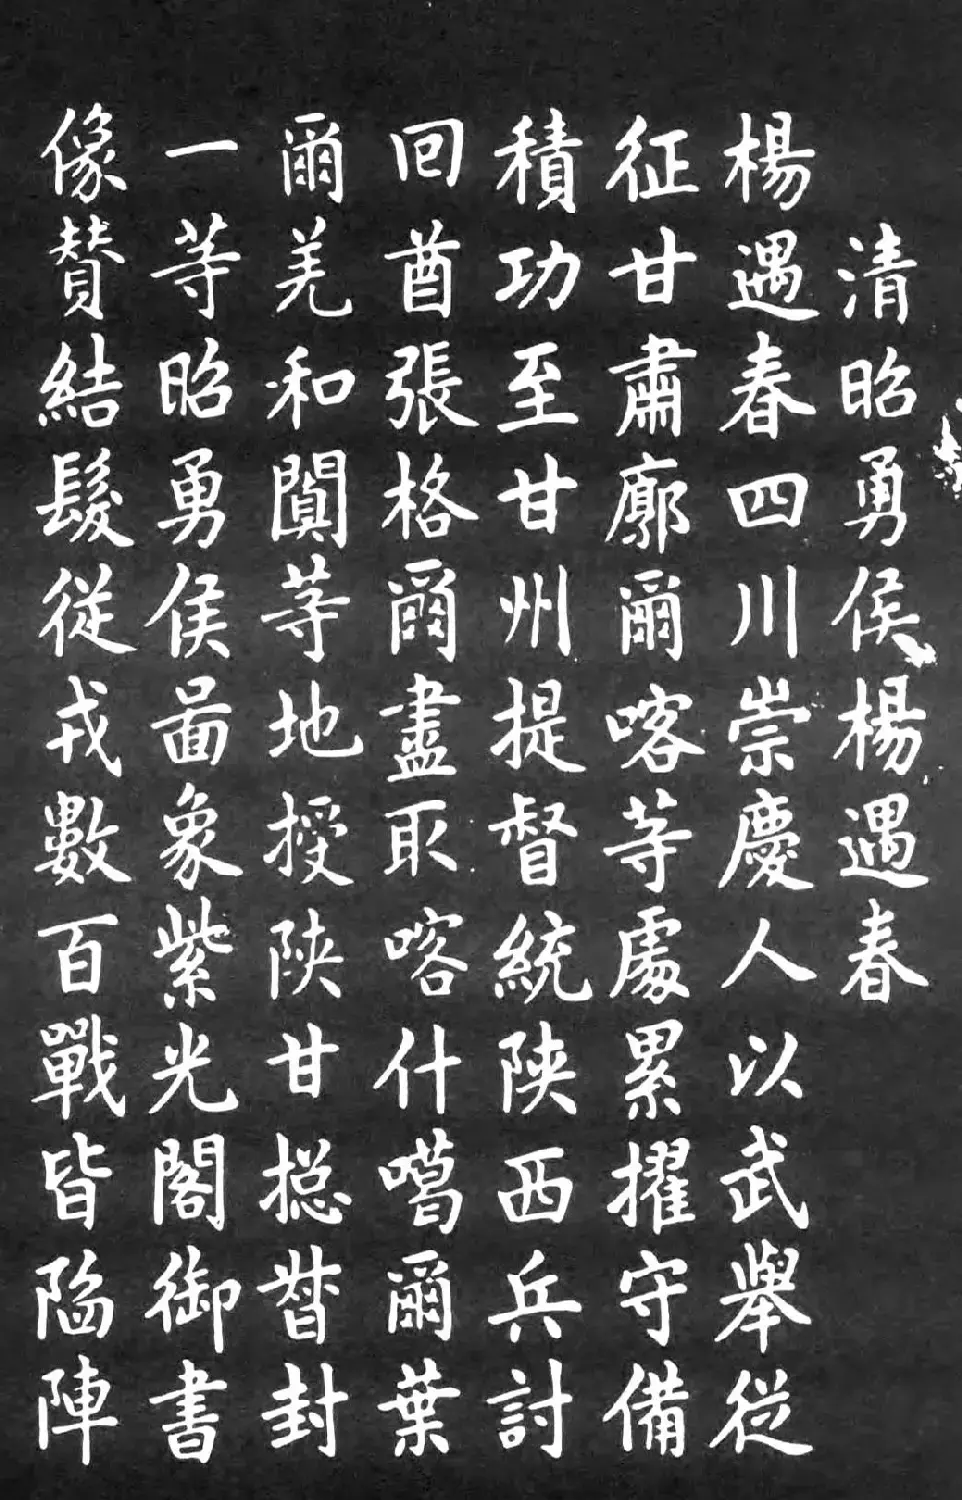 清昭勇侯楊遇春
楊遇春四川崇慶人以武舉從
征甘肅廓爾喀等處累擢守備
積功至甘州提督統陝西兵討
回酋張格爾盡取喀什噶爾葉
爾羌和闐等地授陝甘揔督封
一等昭勇侯啚象紫光閣御書
像贊結髮從戎數百戰皆陷陣